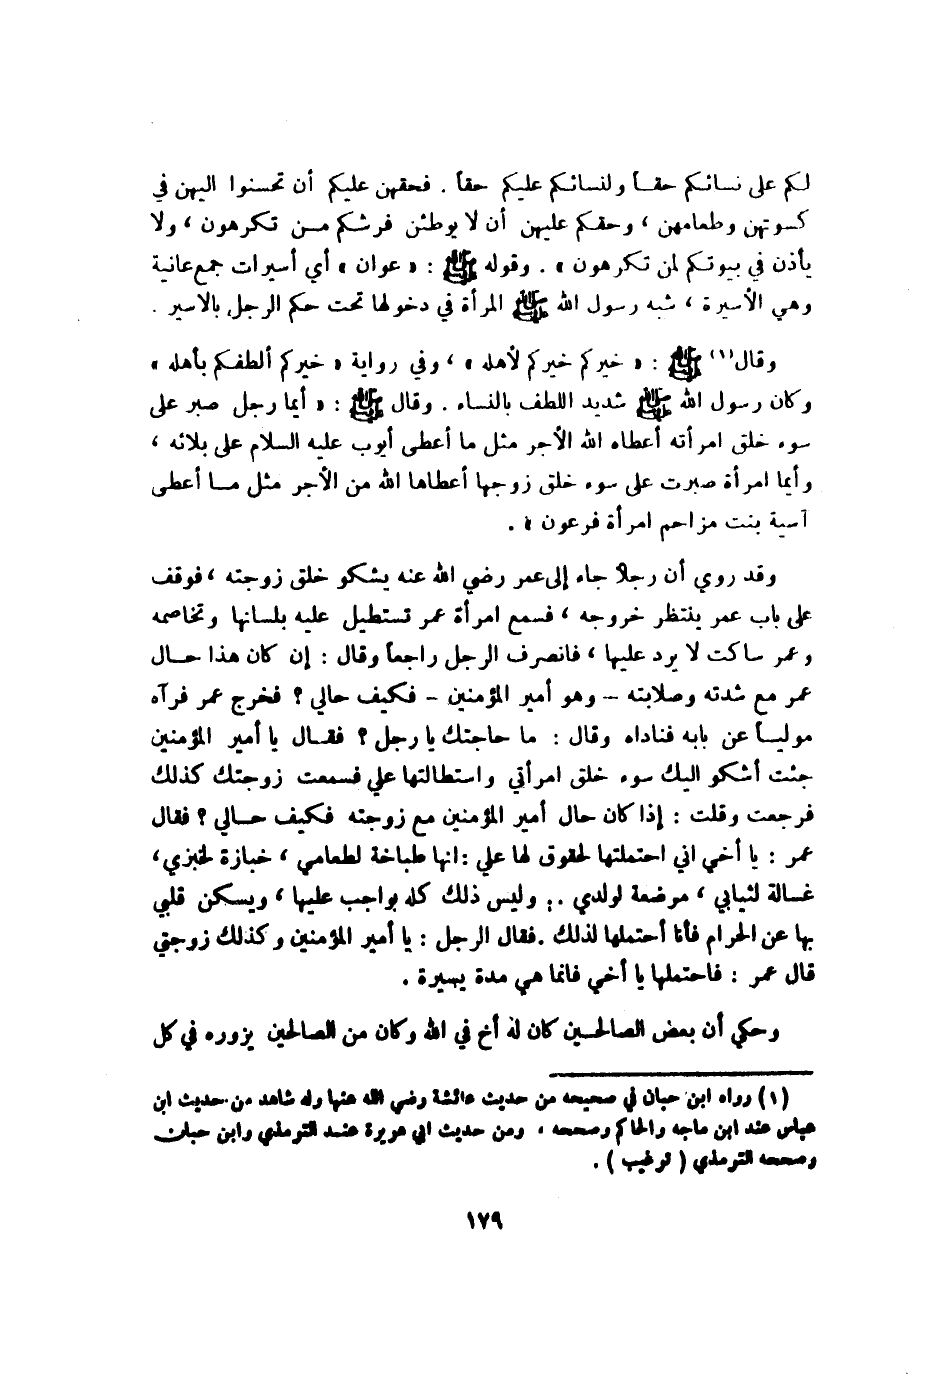 لكم على نسائكم حقـاً ولنسائكم عليكم حقاً . فحقهن عليكم أن تحسنوا اليهن في
كسوتهن وطعامهن ، وحقكم عليهن أن لا يوطئن فرشكم مـن تكرهون ، ولا
يأذن في بيوتكم لمن تكرهون » . وقوله ﷺ : « عوان » أي أسيرات جمع عانية
وهي الأسيرة ، شبه رسول الله ﷺ المرأة في دخولها تحت حكم الرجل بالاسير .
وقال (١) ﷺ : « خيركم خيركم لأهله » ، وفي رواية « خيركم ألطفكم بأهله »
وكان رسول الله ﷺ شديد اللطف بالنساء . وقال ﷺ : « أيما رجل صبر على
سوء خلق امرأته أعطاه الله الأجر مثل ما أعطى أيوب عليه السلام على بلائه ،
وأيما امرأة صبرت على سوء خلق زوجها أعطاها الله من الأجر مثل مـا أعطى
آسية بنت مزاحم امرأة فرعون » .
وقد روي أن رجلاً جاء إلى عمر رضي الله عنه يشكو خلق زوجته ، فوقف
على باب عمر ينتظر خروجه ، فسمع امرأة عمر تستطيل عليه بلسانها وتخاصمه
وعمر ساكت لا يرد عليها ، فانصرف الرجل راجعاً وقال : إن كان هذا حـال
عمر مع شدته وصلابته – وهو أمير المؤمنين – فكيف حالي ؟ فخرج عمر فرآه
موليـاً عن بابه فناداه وقال : ما حاجتك يا رجل ؟ فقـال يا أمير المؤمنين
جئت أشكو اليك سوء خلق امرأتي واستطالتها علي فسمعت زوجتك كذلك
فرجعت وقلت : إذا كان حال أمير المؤمنين مع زوجته فكيف حـالي ؟ فقال
عمر : يا أخي اني احتملتها لحقوق لها علي : انها طباخة لطعامي ، خبازة لخبزي ،
غسالة لثيابي ، مرضعة لولدي .. وليس ذلك كله بواجب عليها ، ويسكن قلبي
بها عن الحرام فأنا أحتملها لذلك . فقال الرجل : يا أمير المؤمنين وكذلك زوجتي
قال عمر : فاحتملها يا أخي فانما هي مدة يسيرة .
وحكي أن بعض الصالحـين كان له أخ في الله وكان من الصالحين يزوره في كل
(١) رواه ابن حبان في صحيحه من حديث عائشة رضي الله عنها وله شاهد من حديث ابن
عباس عند ابن ماجه والحاكم وصححه ، ومن حديث ابي هريرة عنـد الترمذي وابن حبان
وصححه الترمذي ( ترغيب ) .
١٧٩